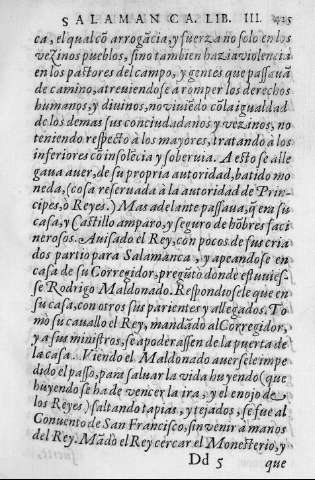 SALAMANCA. LIB. III. 425
ca, el qual cõ arrogãcia, y fuerza no solo en los
vezinos pueblos, sino tambien hazia violencia
en los pastores del campo, y gentes que passauã
de camino, atreuiendose a romper los derechos
humanos, y diuinos, no viuiẽdo cõ la igualdad
de los demas sus conciudadanos y vezinos, no
teniendo respecto à los mayores, tratando à los
inferiores cõ insolẽcia y soberuia. A esto se alle
gaua auer, de su propria autoridad, batido mo
neda, (cosa reseruada à la autoridad de Prin-
cipes, ò Reyes.) Mas adelante passaua, q̃ era su
casa, y Castillo amparo, y seguro de hõbres faci
nerosos. Auisado el Rey, con pocos de sus cria
dos partio para Salamanca, y apeandose en
casa de su Corregidor, pregũtò donde estuuies-
se Rodrigo Maldonado. Respondiosele que en
su casa, con otros sus parientes y allegados. To
mò su cauallo el Rey, mandãdo al Corregidor,
y a sus ministros, se apoderassen de la puerta de
la casa. Viendo el Maldonado auersele impe
dido el passo, para saluar la vida huyendo (que
huyendo se ha de vencer la ira, y el enojo de
los Reyes) saltando tapias, y tejados, se fue al
Conuento de San Francisco, sin venir à manos
del Rey. Mãdò el Rey cercar el Monesterio, y
Dd 5 que